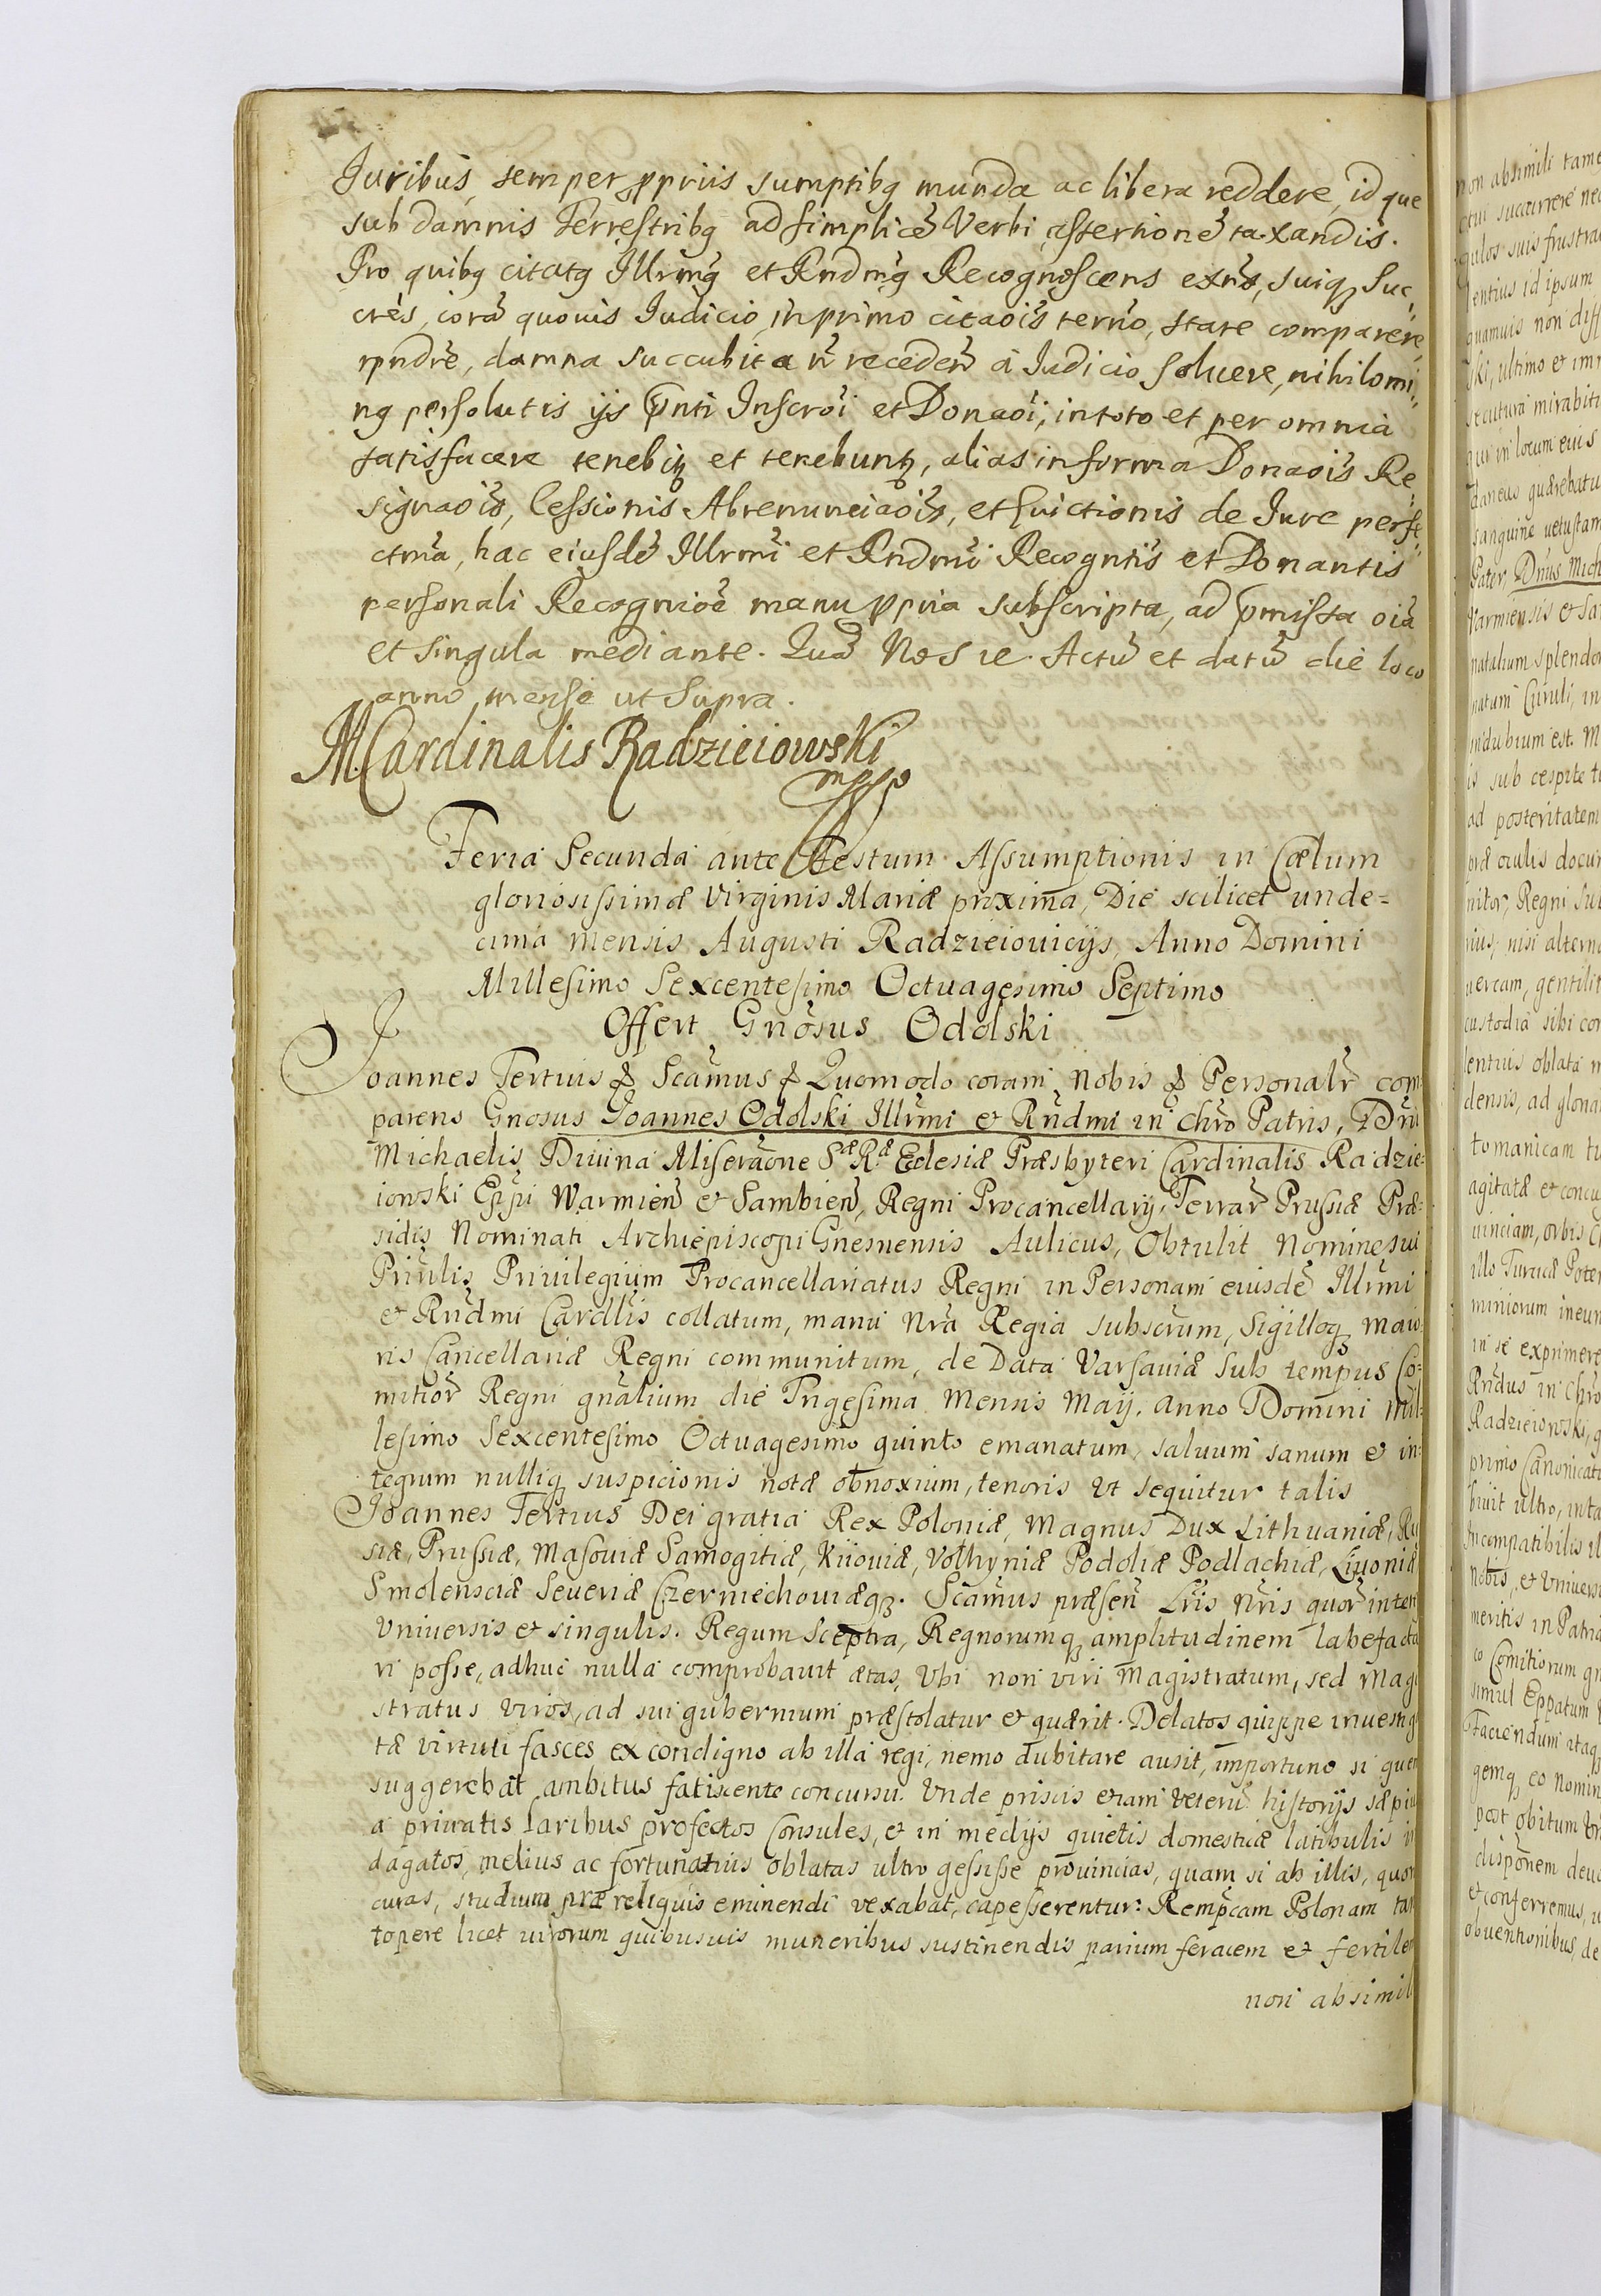 Juribus semper ppriis sumptibq munda ac libera reddere, id que
sub damnis Terrestribq ad simplicē Verbi assertionē taxandis.
Pro quibq citatq Illrmq et Rndmq Recognoscens exns, suiq Suc„
crēs, corā quovis Judicio in primo citaōis termo, stare comparere,
rpndre, damna succubita ñ recedeñ a Judicio solvere, nihilomi„
nq persolutis ijs pnti Inscroi et Donaoi, in toto et per omnia
satisfacere tenebitʒ et tenebuntʒ, alias in forma Donaōis Re„
signaōis, Cessionis Abrenunciaōis, et Evictionis de Jure perfe„
ctma, hac eiusdē Illrmi et Rndmi Recogntis et Donantis
personali Recogniōe manu ppria subscripta, ad pmissa oia
et singula mediante. Quā Nos re. Actū et datū die loco
anno mense ut Supra.
M. Cardinalis Radzieiowski
mpp
Feria Secunda ante Festum Assumptionis in Cælum
gloriosissimæ Virginis Mariæ proxima, Die scilicet unde=
cima mensis Augusti Radzieiovicijs, Anno Domini
Millesimo Sexcentesimo Octuagesimo Septimo
Offert Gnosus Odolski
Joannes Tertius & Scamus & Quomodo coram nobis & Personalr com
parens Gnosus Joannes Odolski Illrmi et Rndmi in Chro Patris, Dni
Michaelis Divina Miseraone Sæ Ræ Ecclesiæ Præsbyteri Cardinalis Radzie=
iowski Eppi Warmieñ et Sambieñ, Regni Procancellarij, Terrar Prussiæ Præ=
sidis Nominati Archiepiscopi Gnesnensis Aulicus, Obtulit Nomine sui
Prinlis Privilegium Procancellariatus Regni in Personam eiusdē Illrmi
et Rndmi Cardlis collatum, manu Nra Regia subscrum, Sigilloqʒ maio
ris Cancellariæ Regni communitum, de Data Varsaviæ sub tempus Co=
mitior Regni gnalium die Trigesima Mensis Maij, Anno Domini Mil=
lesimo Sexcentesimo Octuagesimo quinto emanatum, salvum sanum et in=
tegrum nulliqʒ suspicionis notæ obnoxium, tenoris ut sequitur talis
Joannes Tertius Dei gratia Rex Poloniæ, Magnus Dux Lithuaniæ, Ru
siæ, Prussiæ, Masoviæ Samogitiæ, Kiioviæ, Volhyniæ Podoliæ Podlachiæ, Livoniæ
Smolensciæ Severiæ Czerniechoviæqʒ. Scamus præseñ Lris Nris quor inter
Universis et singulis. Regum Sceptra, Regnorumqʒ amplitudinem labefacta
ri posse, adhuc nulla comprobavit ætas, Ubi non viri Magistratum, sed Magi
stratus viros, ad sui gubernium præstolatur et quærit. Delatos quippe investiga
tæ virtuti fasces ex condigno ab illa regi, nemo dubitare ausit, importuno si quem
suggerebat ambitus fatiscente concursu. Unde priscis etiam veterū historijs sæpiu
a privatis laribus profectos Consules, et in medijs quietis domesticæ latibulis in
dagatos, melius ac fortunatius oblatas ultro gessisse provincias, quam si ab illis, quor
curas, studium præ reliquis eminendi vexabat, capesserentur: Rempcam Polonam tan
topere licet virorum quibusvis muneribus sustinendis parium feracem et fertilem
non absimil
non absimili tame
succurrere nec
gulos suis frustra
lentius id ipsum
quamuis non diff
ski, ultimo et imm
secutura mirabitu
qui in locum eius
daneus quærebatu
sanguine vetustam
Pater, Dnus Mich
Varmiensis et Sa
natalium splendo
natam Curuli, in
indubium est. M
is sub cespite t
ad posteritatem
præ oculis docum
nitor, Regni sui
rius, nisi altern
vercam, gentilit
custodia sibi con
lentius oblata m
densis, ad gloria
tomanicam tu
agitatæ et concu
vinciam, orbis C
illo Turcicæ Poten
miniorum ineun
in se exprimere
Rndus in Chro
Radzieiowski, q
primo Canonicatu
buit ultro, inta
Incompatibilis il
Nobis, et Univers
meritis in Patria
co Comitiorum gn
simul Eppatum
Faciendum itaqʒ
gemqʒ eo nomin
post obitum
disponem deuo
et conferremus, u
obventionibus, de